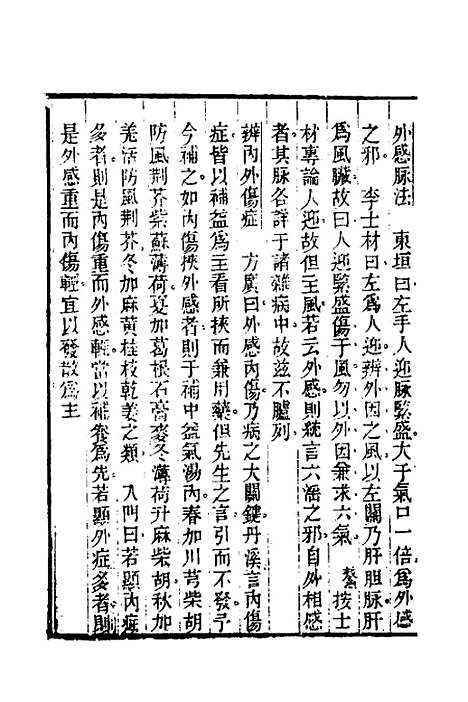 外感脉法　東垣曰左手人迎脉緊盛大于氣口一倍爲外感
之邪　李士材曰左爲人迎辨外因之風以左關乃肝胆脉肝
爲風臟故曰人迎緊盛傷于風勿以外因兼求六氣　按士
材專論人迎故但主風若云外感則統言六淫之邪自外相感
者其脉各詳于諸雜病中故兹不臚列
辨內外傷症　方廣曰外感內傷乃病之大關鍵丹溪言內傷
症皆以補益爲主看所挾而兼用藥但先生之言引而不發予
今補之如內傷挾外感者則于補中益氣湯內春加川芎柴胡
防風荆芥柴蘇薄荷夏加葛根石膏麥冬薄荷升麻柴胡秋加
羗活防風荆芥冬加麻黄桂枝乾姜之類　入門曰若顯內症
多者則是內傷重而外感輕當以補養爲先若顯外症多者則
是外感重而內傷輕宜以發散爲主